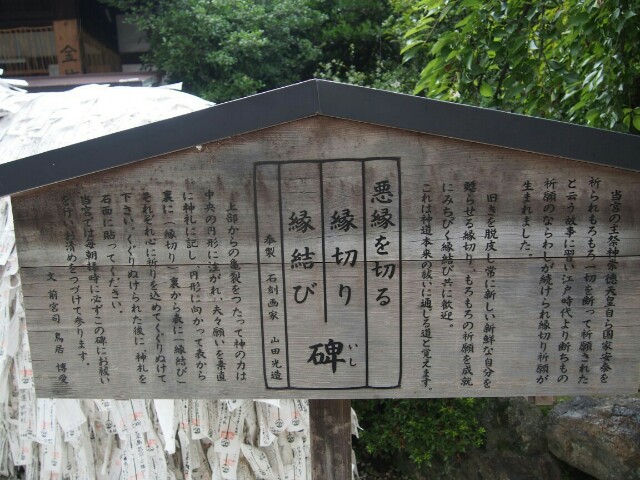 当宮の主祭神崇徳天皇自ら国家安泰を
祈られもろもろ一切を断って祈願された
と云う故事に習い江戸時代より断ちもの
祈願のならわしが続けられ縁切り祈願が
生まれました。
旧きを脱皮し常に新しい新鮮な自分を
甦らせる縁切り、もろもろの祈願を成就
にみちびく縁結び共に歓迎。
これは神道本来の祓いに通じる道と覚えます。
悪縁を切る
縁切り
縁結び
碑
いし
奉製 石刻画家 山田光造
上部からの亀裂をつたって神の力は
中央の円形に注がれ、夫々願いを素直
に神札に記し、円形に向かって表から
裏に「縁切り」裏から表に「縁結び」
それぞれ心に祈りを込めてくぐりぬけて
下さい。くぐりぬけられた後に、神札を
石面に貼ってください。
当宮では毎朝拝時に必ずこの碑にお祓い
をけいお清めをつづけて参ります。
文 前宮司 鳥居 博愛
金